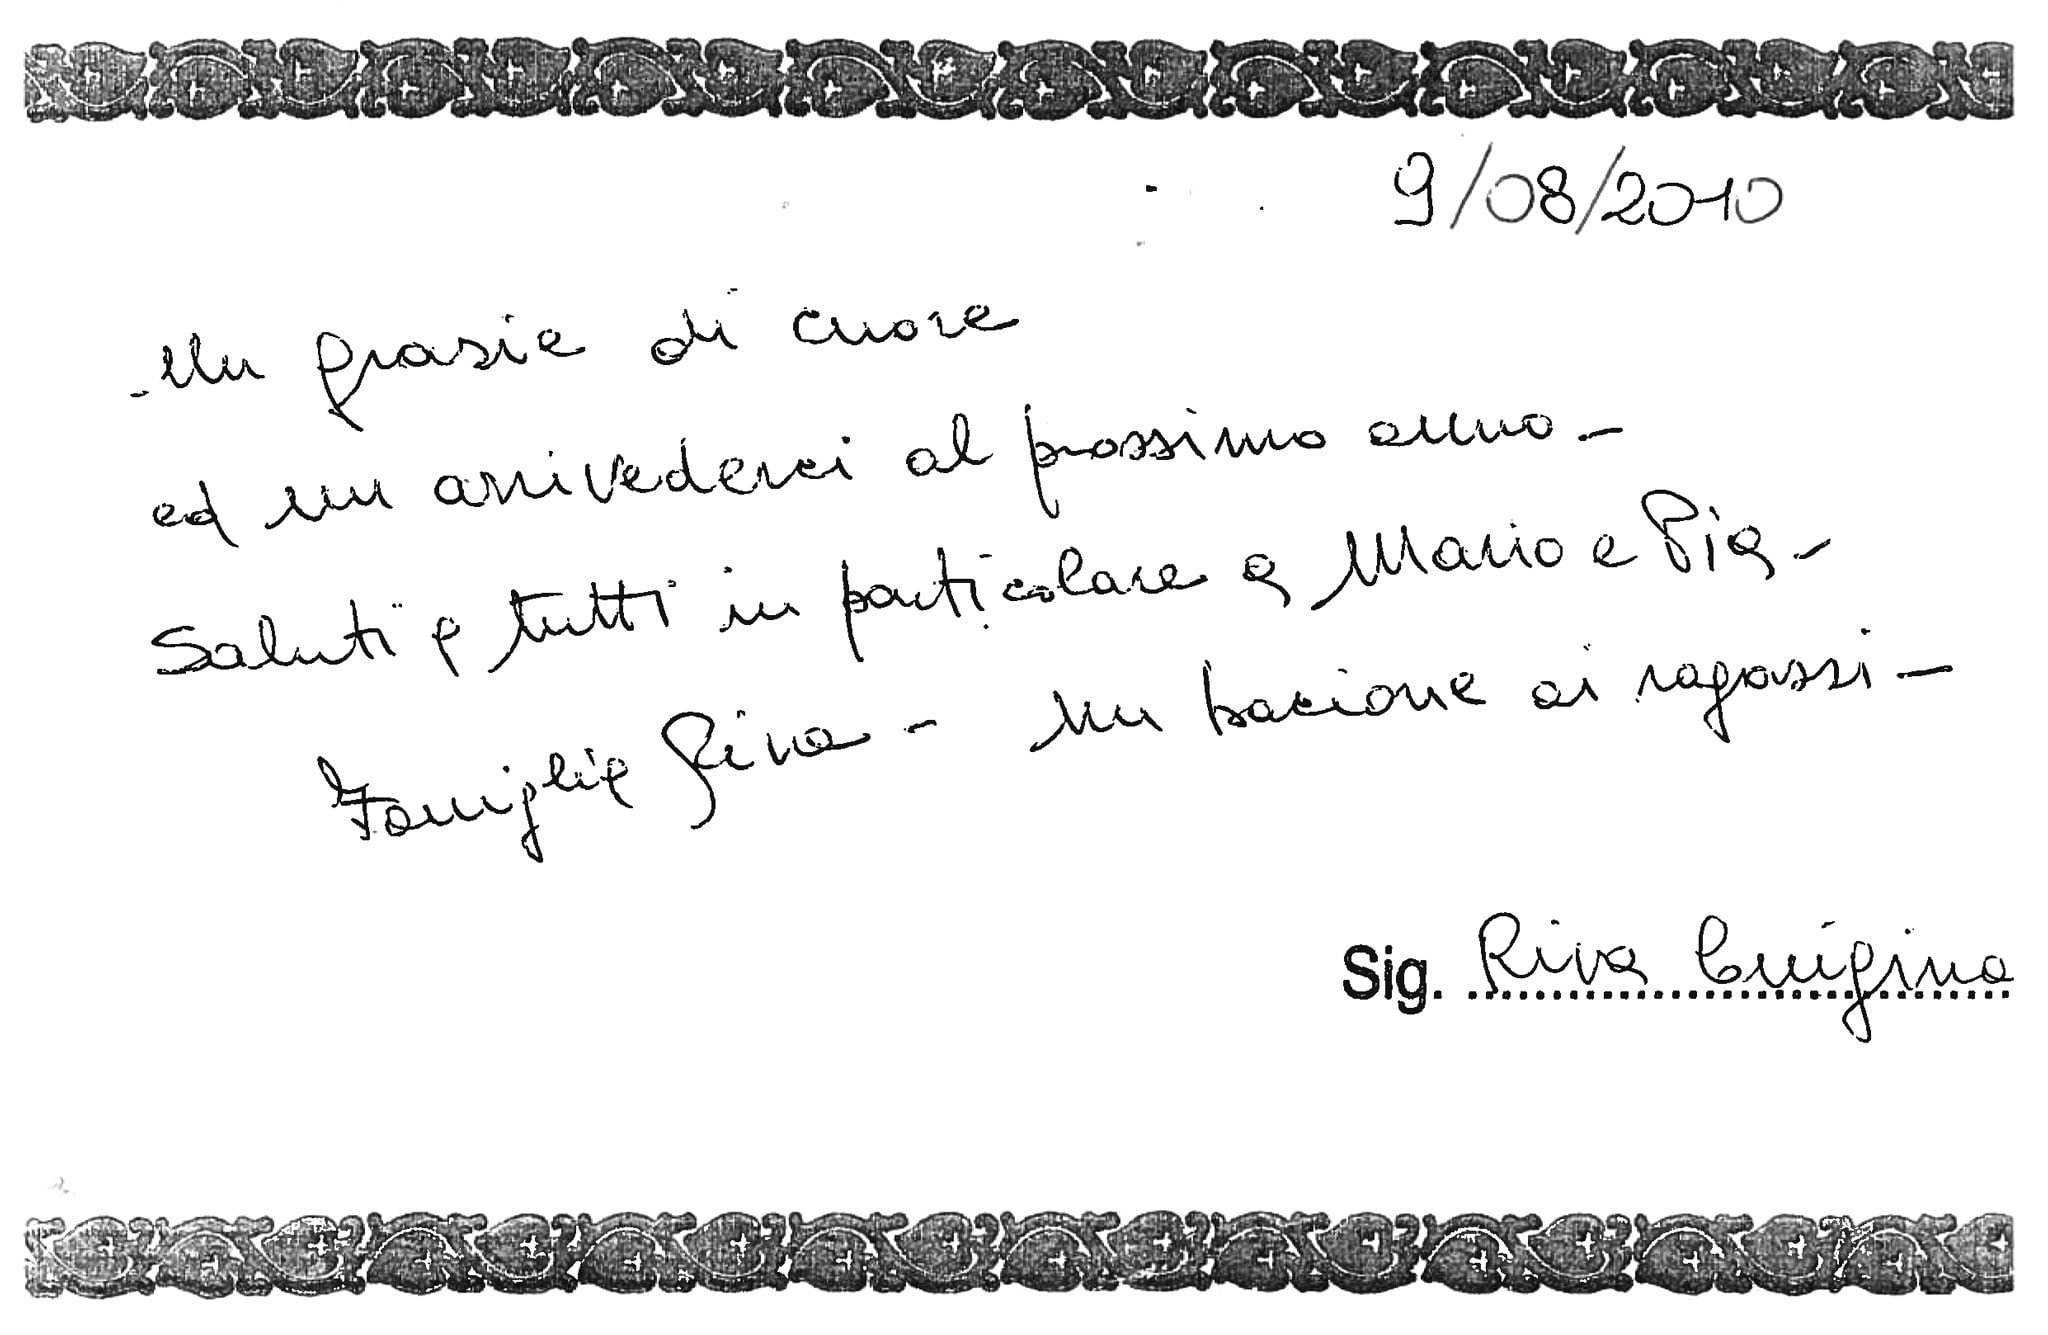 9/08/2010
Un grazie di cuore
ed un arrivederci al prossimo anno -
Saluti a tutti in particolare a Mario e Pia -
Famiglia Riva - un bacione ai ragazzi -
Sig. Riva Luigina